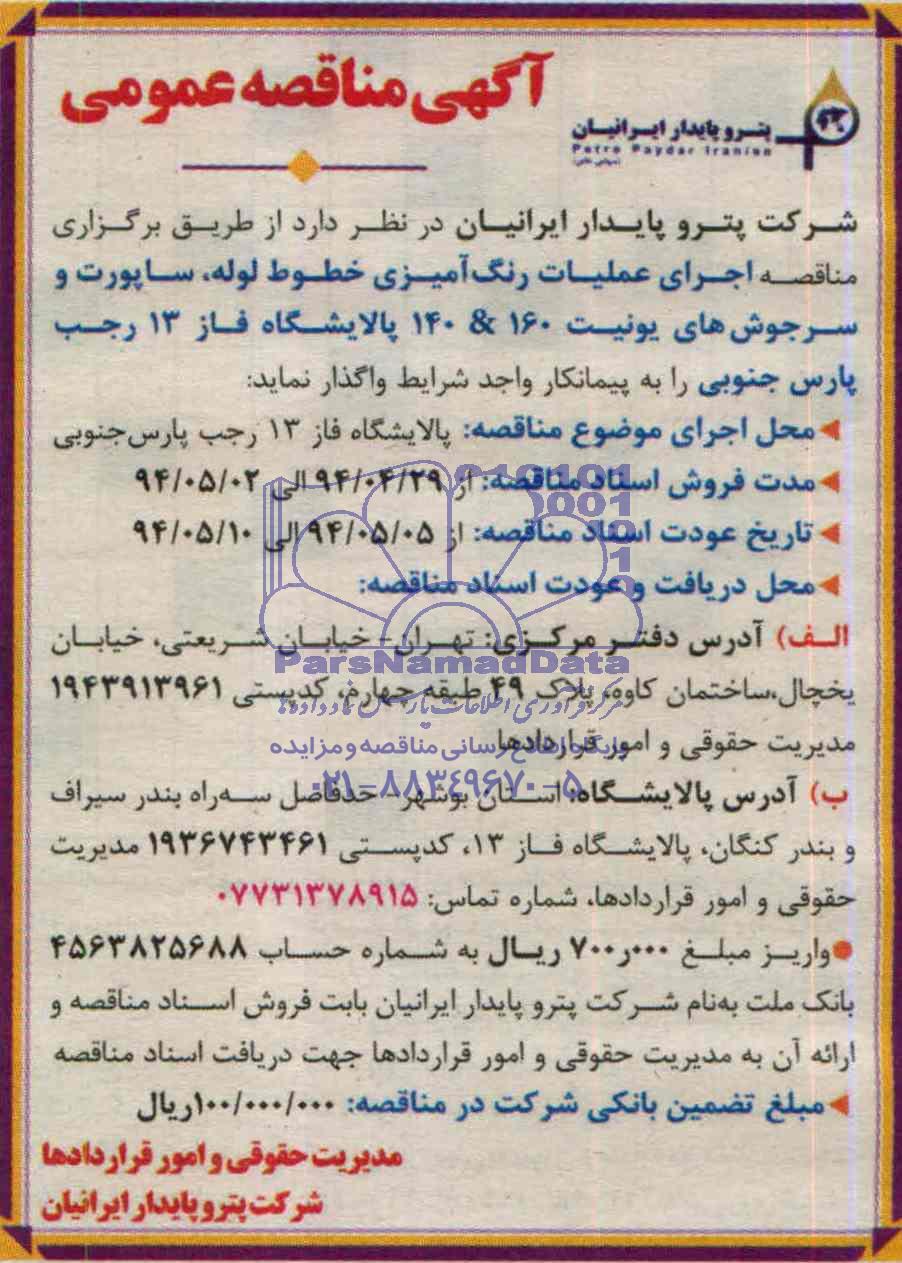 آگهی مناقصه عمومی
پترو پایدار ایرانیان
Petro Paydar Iranian
(سهامی خاص)
شرکت پترو پایدار ایرانیان در نظر دارد از طریق برگزاری
مناقصه اجرای عملیات رنگ‌آمیزی خطوط لوله، ساپورت و
سرجوش‌های یونیت ۱۶۰ & ۱۴۰ پالایشگاه فاز ۱۳ رجب
پارس جنوبی را به پیمانکار واجد شرایط واگذار نماید:
محل اجرای موضوع مناقصه: پالایشگاه فاز ۱۳ رجب پارس‌جنوبی
مدت فروش اسناد مناقصه: از ۹۴/۰۴/۲۹ الی ۹۴/۰۵/۰۲
تاریخ عودت اسناد مناقصه: از ۹۴/۰۵/۰۵ الی ۹۴/۰۵/۱۰
محل دریافت و عودت اسناد مناقصه:
الف) آدرس دفتر مرکزی: تهران- خیابان شریعتی، خیابان
ParsNamadData
یخچال،ساختمان کاوه، پلاک ۴۹ طبقه چهارم، کدپستی ۱۹۴۳۹۱۳۹۶۱
مرکز فرآوری اطلاعات پارس نماد داده‌ها
مدیریت حقوقی و امور قراردادها
پایگاه اطلاع رسانی مناقصه و مزایده
ب) آدرس پالایشگاه: استان بوشهر- حدفاصل سه‌راه بندر سیراف
۰۲۱-۸۸۳۴۹۶۷۰-۵
و بندر کنگان، پالایشگاه فاز ۱۳، کدپستی ۱۹۳۶۷۴۳۴۶۱ مدیریت
حقوقی و امور قراردادها، شماره تماس: ۰۷۷۳۱۳۷۸۹۱۵
واریز مبلغ ۷۰۰٫۰۰۰ ریال به شماره حساب ۴۵۶۳۸۲۵۶۸۸
بانک ملت به‌نام شرکت پترو پایدار ایرانیان بابت فروش اسناد مناقصه و
ارائه آن به مدیریت حقوقی و امور قراردادها جهت دریافت اسناد مناقصه
مبلغ تضمین بانکی شرکت در مناقصه: ۱۰۰/۰۰۰/۰۰۰ریال
مدیریت حقوقی و امور قراردادها
شرکت پترو پایدار ایرانیان